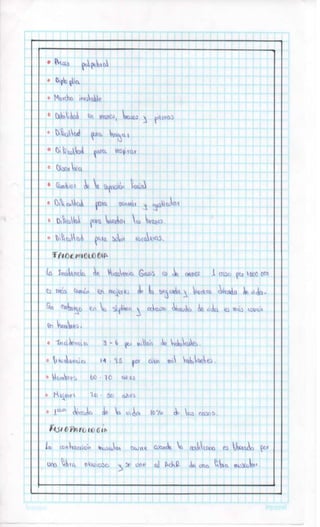 Ptosis palpebral
Diplopia
Marcha inestable
Debilidad en manos, brazos y piernas
Dificultad para tragar
Dificultad para respirar
Disartria
Cambios de la expresión facial
Dificultad para sonreír y
Dificultad para levantar los brazos.
Dificultad para subir escaleras.
EPIDEMIOLOGIA
La Incidencia de Miastenia Gravis es de menos 1 caso por
es más común en mujeres de la segunda y tercera década de vida.
Sin embargo en la séptima y octava década de vida es más común
en hombres.
Incidencia 3 - 6 por millón de habitantes.
Prevalencia 14 - 25 por cien mil habitantes.
Hombres 60 - 70 años
Mujeres 20 - 30 años
1era década de la vida 10% de los casos.
FISIOPATOLOGIA
La contracción muscular ocurre cuando la acetilcolina es liberada por
una fibra nerviosa y se une al AchR de una fibra muscular